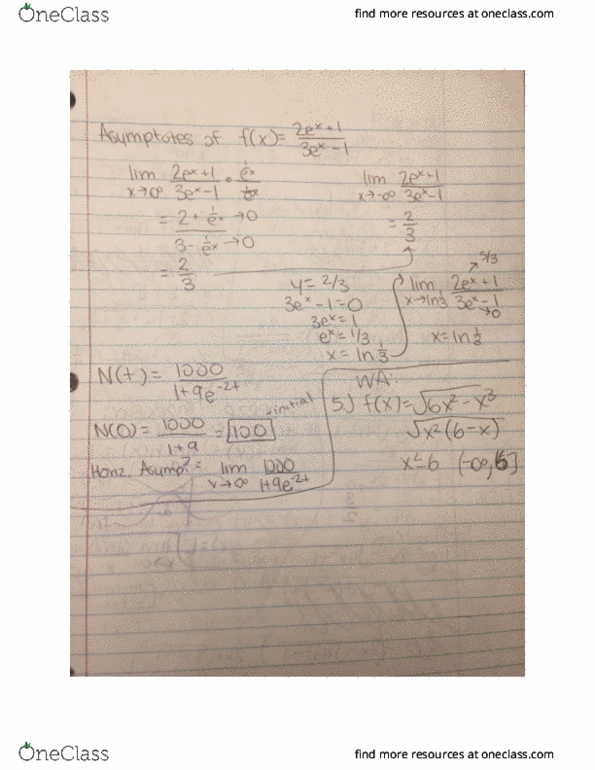 OneClass
find more resources at oneclass.com
Asymptotes of f(x) = (2e^x + 1)/(3e^x - 1)
lim x→∞ (2e^x + 1)/(3e^x - 1) · (1/e^x)/(1/e^x)
= (2 + 1/e^x → 0)/(3 - 1/e^x → 0)
= 2/3
lim x→-∞ (2e^x + 1)/(3e^x - 1)
= 2/3
y = 2/3
3e^x - 1 = 0
3e^x = 1
e^x = 1/3
x = ln 1/3
lim x→ln 1/3 (2e^x + 1)/(3e^x - 1) → 5/3 → 0
x = ln 1/3
N(t) = 1000/(1 + 9e^-2t)
N(0) = 1000/(1 + 9) = 100 = initial
Horiz. Asymp? = lim x→∞ 1000/(1 + 9e^-2t)
WA:
5) f(x) = √6x² - x³
√x²(6 - x)
x ≤ 6 (-∞, 6]
OneClass
find more resources at oneclass.com